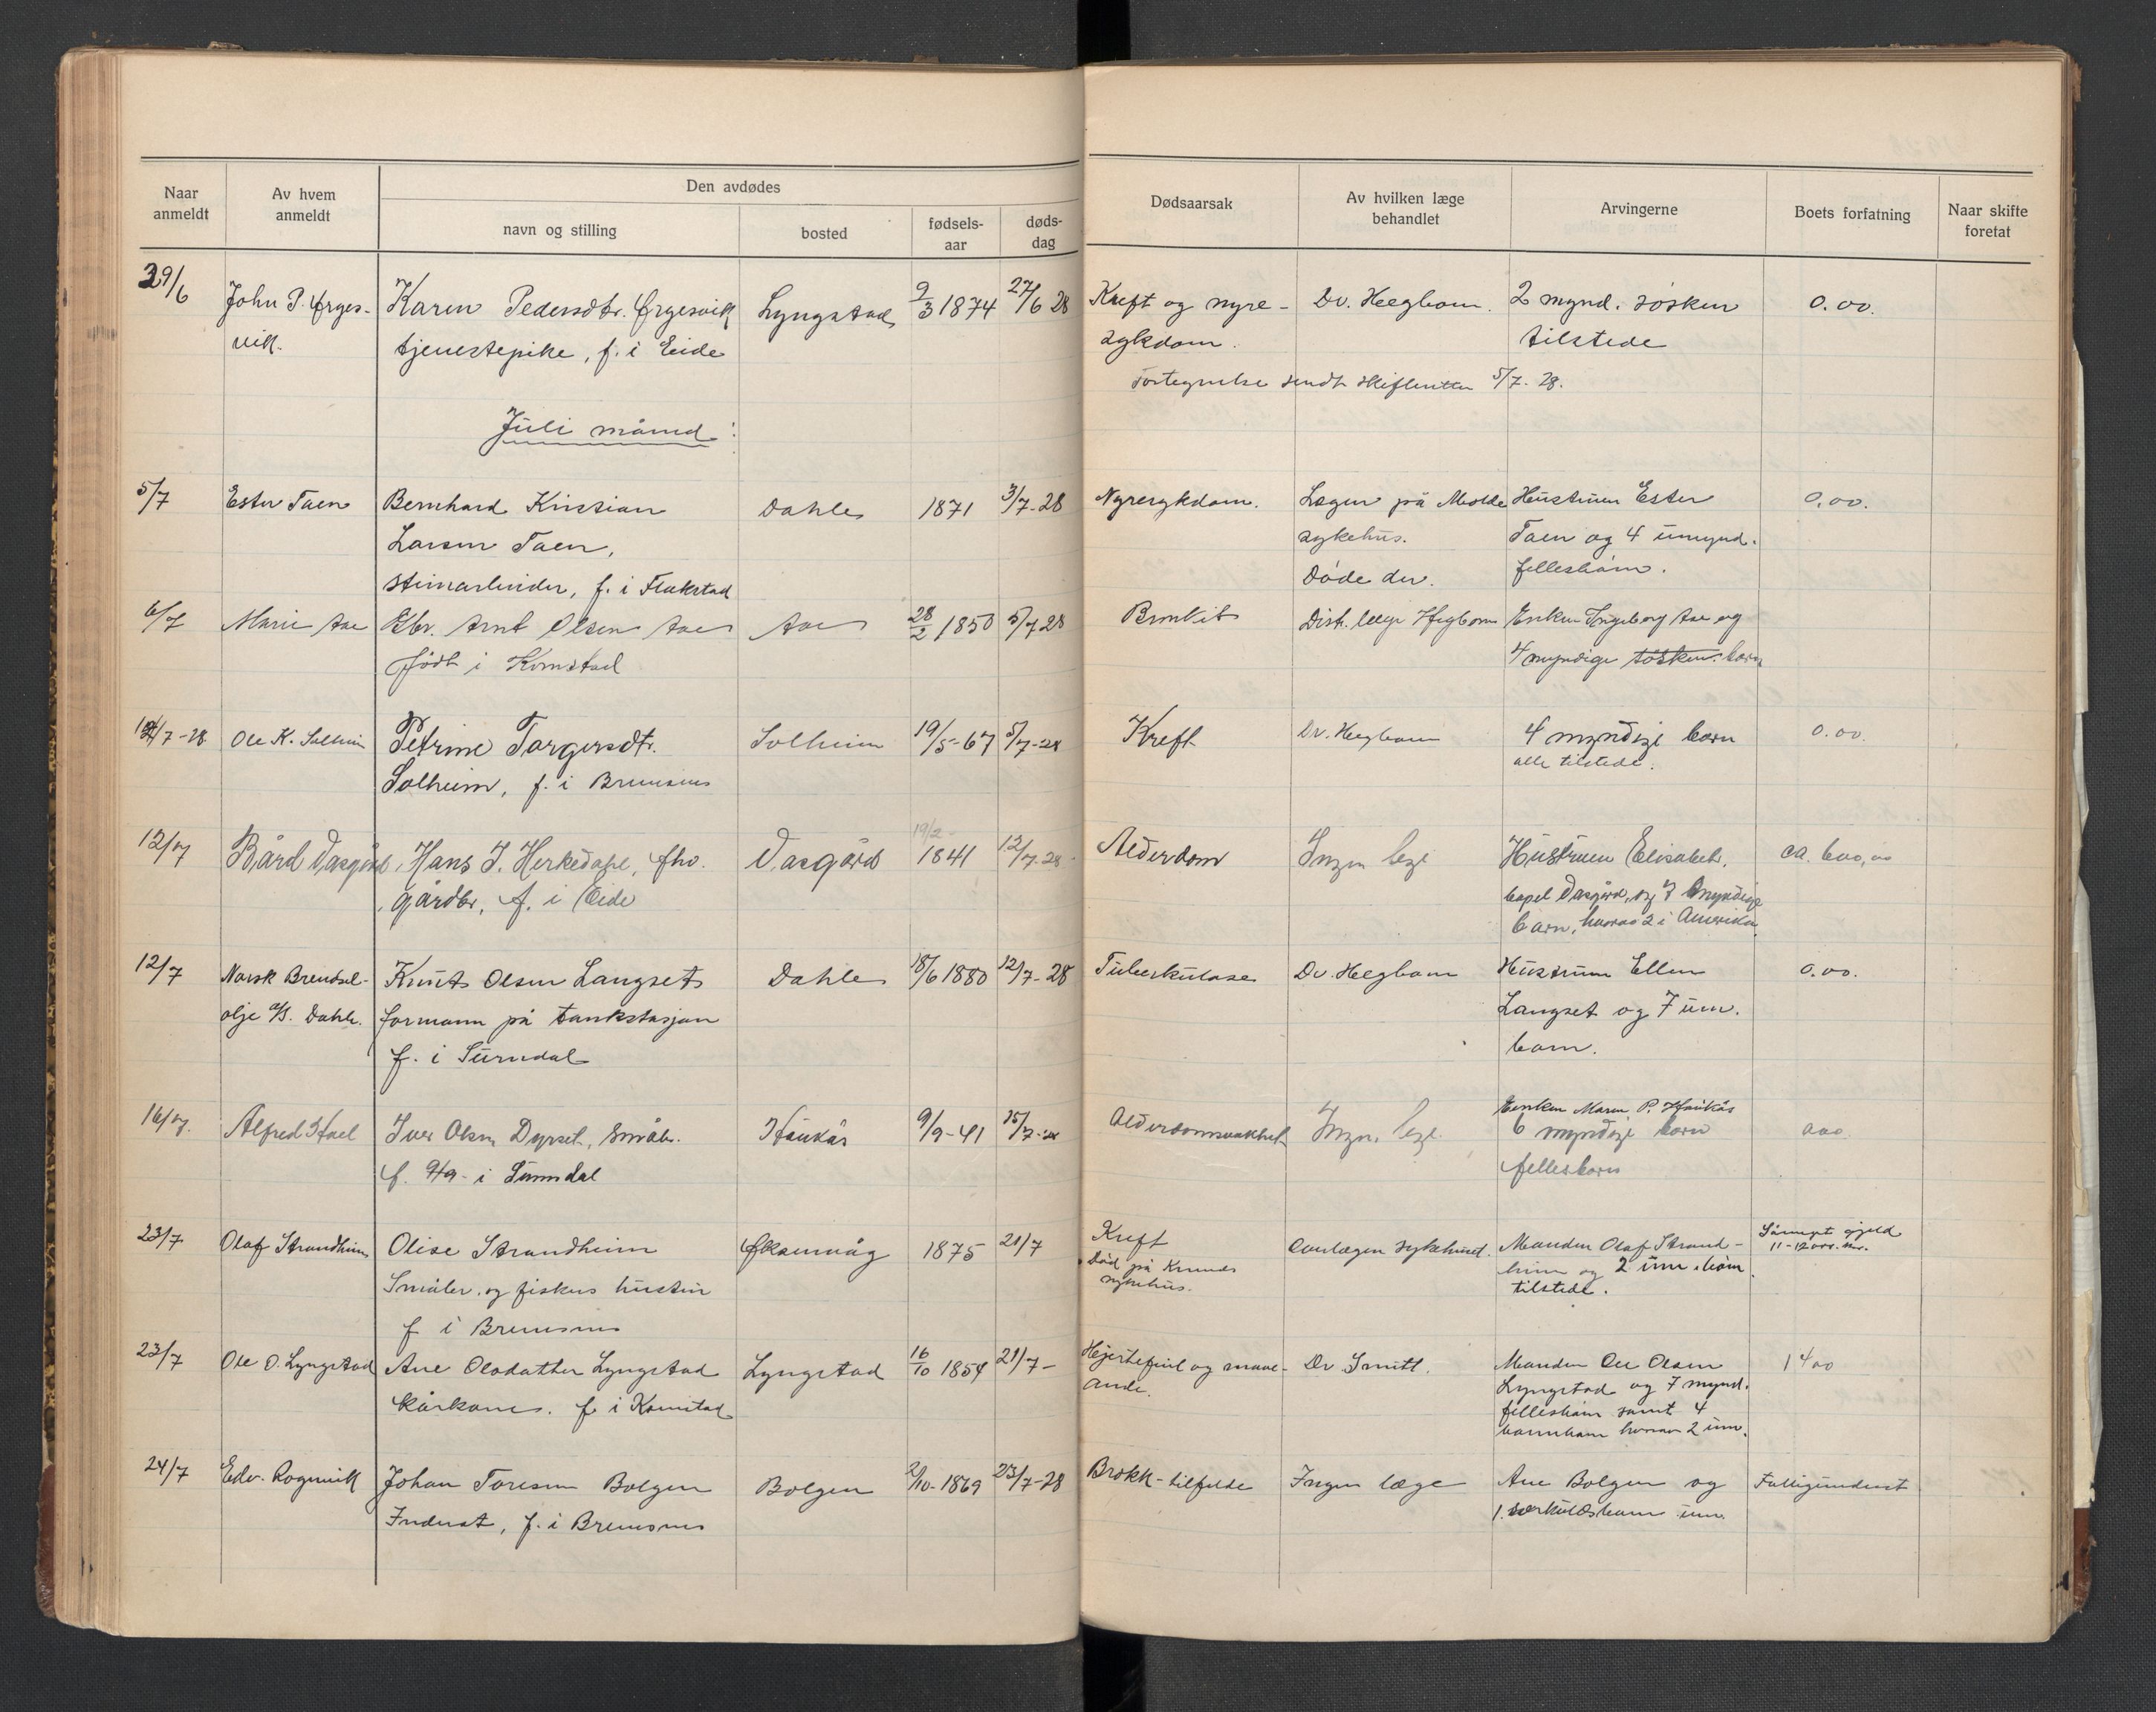 Naar anmeldt
Av hvem anmeldt
Den avdødes
navn og stilling
bosted
fødsels-aar
døds-dag
Dødsaarsak
Av hvilken læge behandlet
Arvingerne
Boets forfatning
Naar skifte foretat
29/6 John P. Ørges- Karen Pedersdtr. Ørgesvik Lyngstad 9/3 1874 27/6 28 Kreft og nyre- Dr. Hegbom. 2 mynd. søsken 0.00.
vik. tjenestepike, f. i Eide sykdom. tilstede
Fortegnelse sendt skifteretten 5/7-28.
Juli måned:
5/7 Ester Taen Bernhard Kristian Dahle 1871 3/7-28 Nyresykdom. Legen på Molde Hustruen Ester 0.00.
Larsen Taen, sykehus. Taen og 4 umynd.
steinarbeider, f. i Flakstad Døde der. fellesbarn.
6/7 Marie Aae Gbr. Arnt Olsen Aae Aae 28/2 1850 5/7 28 Distr. læge Hegbom Enken Ingeborg Aae og
født i Kornstad 4 myndige søsken. barn
/7-28 Ole K. Solheim Petrine Torgersdtr. Solheim 19/5-67 5/7-28 Kreft Dr. Hegbom 4 myndige barn 0.00.
Solheim, f. i Bremsnes alle tilstede.
19/2-
12/7 Bård Vasgård Hans J. Herkedal, fhv. Vasgård 1841 12/7-28 Alderdom Ingen lege Hustruen Elisabeth ca. 600,00
gårdbr. f. i Eide Vasgård, og myndige
barn, hvorav 2 i Amerika.
12/7 Norsk Brendsel- Knut Olsen Langset Dahle 18/6 1880 12/7-28 Tuberkulose Dr. Hegbom Hustruen Ellen 0.00.
olje A/S. Dahle. formann på tankstasjon Langset og 7 um.
f. i Surndal barn.
16/7. Alfred Hael Iver Olsen Dyrset, småbr. Haukås 9/9-41 15/7-28 Alderdomssvakhet Ingen lege. Enken Maren P. Haukås
f. 9/9- i Sunndal 6 myndige barn 000.
fellesbarn
23/7 Olaf Strandheim Olise Strandheim Øksenvåg 1875 21/7 Kreft sykehuset. Manden Olaf Strand-
Småbr. og fiskers hustru Død på Krsunds sykehus. heim og 2 um. barn
f i Bremsnes tilstede. gjeld 11-1200. kr.
23/7 Ole O. Lyngstad Ane Olsdatter Lyngstad Lyngstad 16/10 1854 21/7- Hjertefeil og Dr Smitt. Manden Ole Olsen 1400
kårkone. f. i Kornstad Lyngstad og 7 mynd.
fellesbarn samt 4
barnebarn hvorav 2 um.
24/7 Edv. Rognvik Johan Toresen Bolgen Bolgen 2/10-1869 23/7-28 Brokk-tilfelde Ingen læge Ane Bolgen og Fattigunderst
Inderst, f. i Bremsnes 1. særkuldsbarn um.